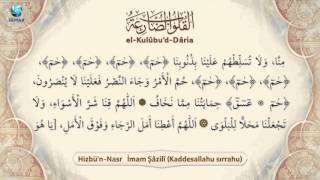 القلوب الضارعة
el-Kulûbu'd-Dâria
مِنَّا، وَلَا تُسَلِّطْهُمْ عَلَيْنَا بِذُنُوبِنَا ﴿حٰمٓ﴾، ﴿حٰمٓ﴾، ﴿حٰمٓ﴾، ﴿حٰمٓ﴾،
﴿حٰمٓ﴾، ﴿حٰمٓ﴾، ﴿حٰمٓ﴾، حُمَّ الْأَمْرُ وَجَاءَ النَّصْرُ فَعَلَيْنَا لَا يُنْصَرُونَ،
﴿حٰمٓ ۞ عٓسٓقٓ﴾ حِمَايَتُنَا مِمَّا نَخَافُ ۞ اَللّٰهُمَّ قِنَا شَرَّ الْأَسْوَاءِ، وَلَا
تَجْعَلْنَا مَحَلًّا لِلْبَلْوَى ۞ اَللّٰهُمَّ أَعْطِنَا أَمَلَ الرَّجَاءِ وَفَوْقَ الْأَمَلِ، [يَا هُوَ
Hizbü'n-Nasr İmam Şâzilî (Kaddesallahu sırrahu)